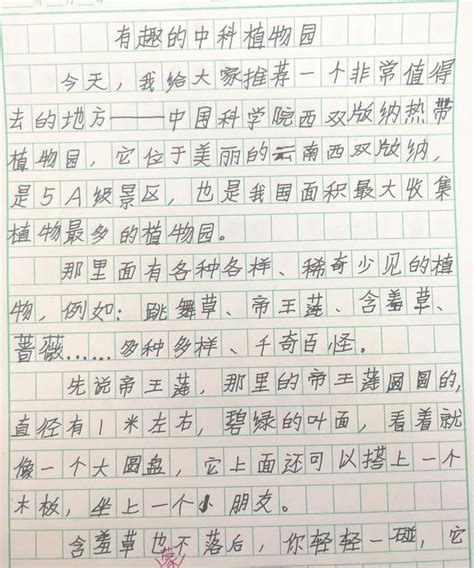 有趣的中科植物园
今天，我给大家推荐一个非常值得
去的地方——中国科学院西双版纳热带
植物园，它位于美丽的云南西双版纳，
是5A级景区，也是我国面积最大收集
植物最多的植物园。
那里面有各种各样、稀奇少见的植
物，例如：跳舞草、帝王莲、含羞草、
蔷薇……多种多样、千奇百怪。
先说帝王莲，那里的帝王莲圆圆的，
直径有1米左右，碧绿的叶面，看着就
像一个大圆盘，它上面还可以搭上一个
木板，坐上一个小朋友。
含羞草也不落后，你轻轻一碰，它